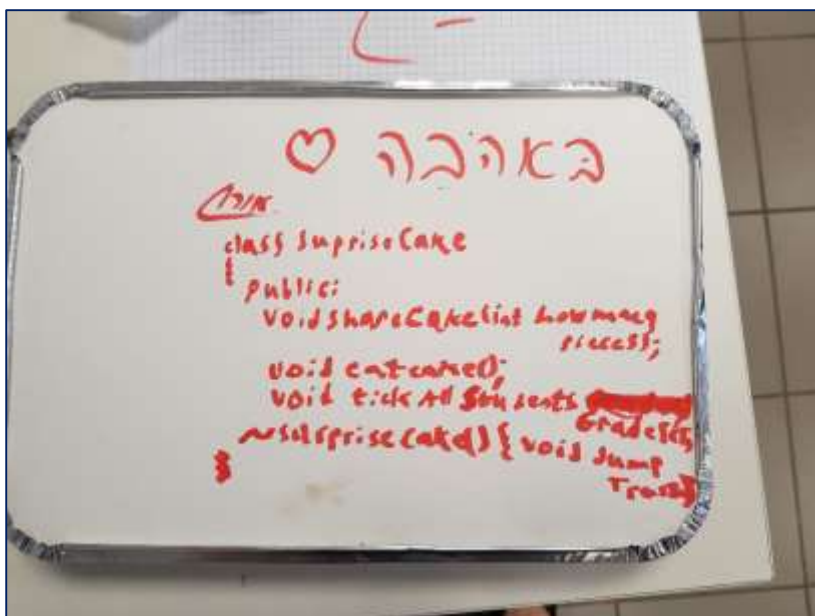 באהבה ♡
class SupriseCake
{
public:
void shareCake(int howmany
pieces);
void eatcake();
void tick All Students
Grades();
~surpriseCake() { void Jump
Trash}
}